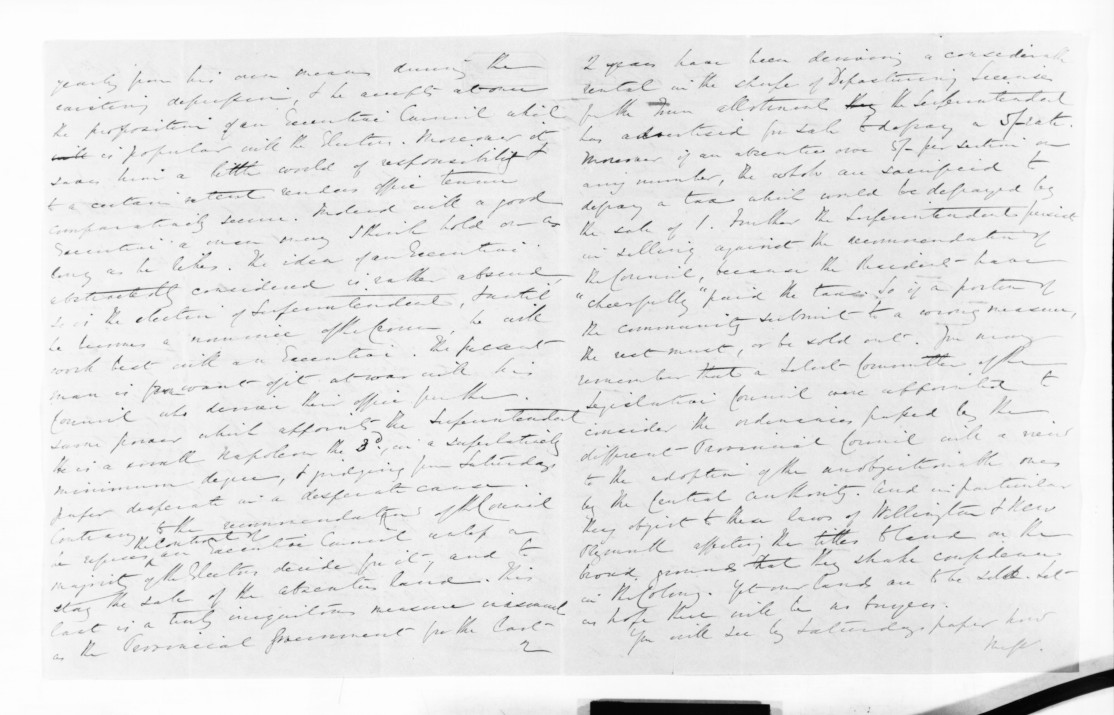 yearly from his own means during the
existing depression, & he accepts at once
the proposition of an Executive Council which
is popular with the Electors. Moreover it
saves him a little world of responsibility &
to a certain extent renders office tenure
comparatively secure. Indeed with a good
Executive a man may I think hold on as
long as he likes. The idea of an Executive
abstractedly considered is rather absurd
so is the election of Superintendent, & until
he becomes a nominee of the Crown, he will
work best with an Executive. The present
man is from want of it at war with his
Council who derive their office from the
same power which appoints the Superintendent
He is a small Napoleon the 3d, in a superlatively
minimum degree, & judging from Saturdays
paper desperate in a desperate cause.
Contrary to the recommendation of the Council
he refuses an Executive Council unless a
the control of
majority of the Electors decide for it, and to
stay the sale of the absentees land. This
last is a truly iniquitous measure inasmuch
as the Provincial Government for the last
2
2 years have been deriving a considerable
rental in the shape of Depasturing Licenses
for the allotments the Superintendent
has advertised for sale to defray a 5/ rate.
Moreover if an absentee owe 5/- per section on
any number, the whole are sacrificed to
defray a tax which would be defrayed by
the sale of 1. Further the Superintendent persist
in selling against the recommendation of
the Council, because the Residents have
"cheerfully" paid the tax. So if a portion of
the community submit to a wrong measure,
the rest must, or be sold out. You may
remember that a Select Committee of the
Legislative Council were appointed to
consider the ordinances passed by the
different Provincial Council with a view
to the adoption of the unobjectionable ones
by the Central authority. And in particular
they object to these laws of Wellington & New
Plymouth affecting the titles to land on the
broad ground that they shake confidence
in the Colony. Yet our lands are to be sold. Let
us hope there will be no buyers.
You will see by Saturdays paper how